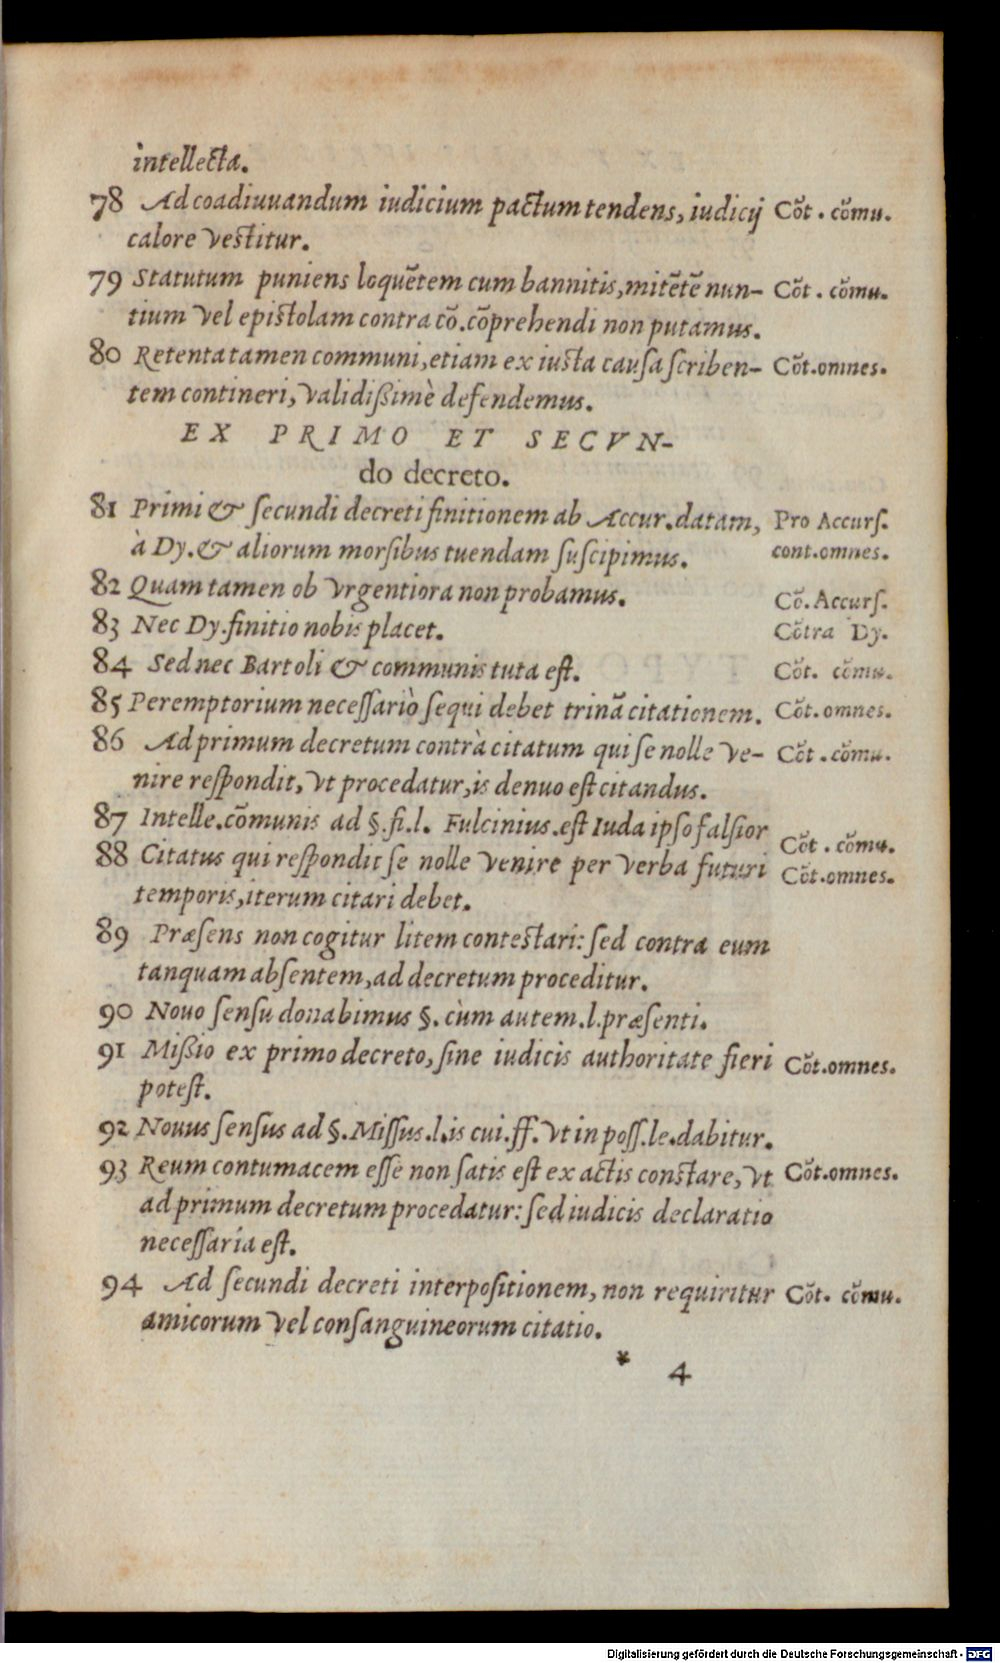 intellecta.
78 Ad coadiuuandum iudicium pactum tendens, iudicij Cõt. cõmu.
calore vestitur.
79 Statutum puniens loquẽtem cum bannitis, mitẽtẽ nun- Cõt. cõmu.
tium vel epistolam contra cõ. cõprehendi non putamus.
80 Retenta tamen communi, etiam ex iusta causa scriben- Cõt. omnes.
tem contineri, validißimè defendemus.
EX PRIMO ET SECVN-
do decreto.
81 Primi & secundi decreti finitionem ab Accur. datam, Pro Accurs.
à Dy. & aliorum morsibus tuendam suscipimus. cont. omnes.
82 Quam tamen ob vrgentiora non probamus. Cõ. Accurs.
83 Nec Dy. finitio nobis placet. Cõtra Dy.
84 Sed nec Bartoli & communis tuta est. Cõt. cõmu.
85 Peremptorium necessariò sequi debet trinã citationem. Cõt. omnes.
86 Ad primum decretum contrà citatum qui se nolle ve- Cõt. cõmu.
nire respondit, vt procedatur, is denuo est citandus.
87 Intelle. cõmunis ad §. fi. l. Fulcinius. est Iuda ipso falsior Cõt. cõmu.
88 Citatus qui respondit se nolle venire per verba futuri Cõt. omnes.
temporis, iterum citari debet.
89 Præsens non cogitur litem contestari: sed contra eum
tanquam absentem, ad decretum proceditur.
90 Nouo sensu donabimus §. cùm autem. l. præsenti.
91 Mißio ex primo decreto, sine iudicis authoritate fieri Cõt. omnes.
potest.
92 Nouus sensus ad §. Missus. l. is cui. ff. vt in poss. le. dabitur.
93 Reum contumacem esse non satis est ex actis constare, vt Cõt. omnes.
ad primum decretum procedatur: sed iudicis declaratio
necessaria est.
94 Ad secundi decreti interpositionem, non requiritur Cõt. cõmu.
amicorum vel consanguineorum citatio.
* 4
Digitalisierung gefördert durch die Deutsche Forschungsgemeinschaft - DFG